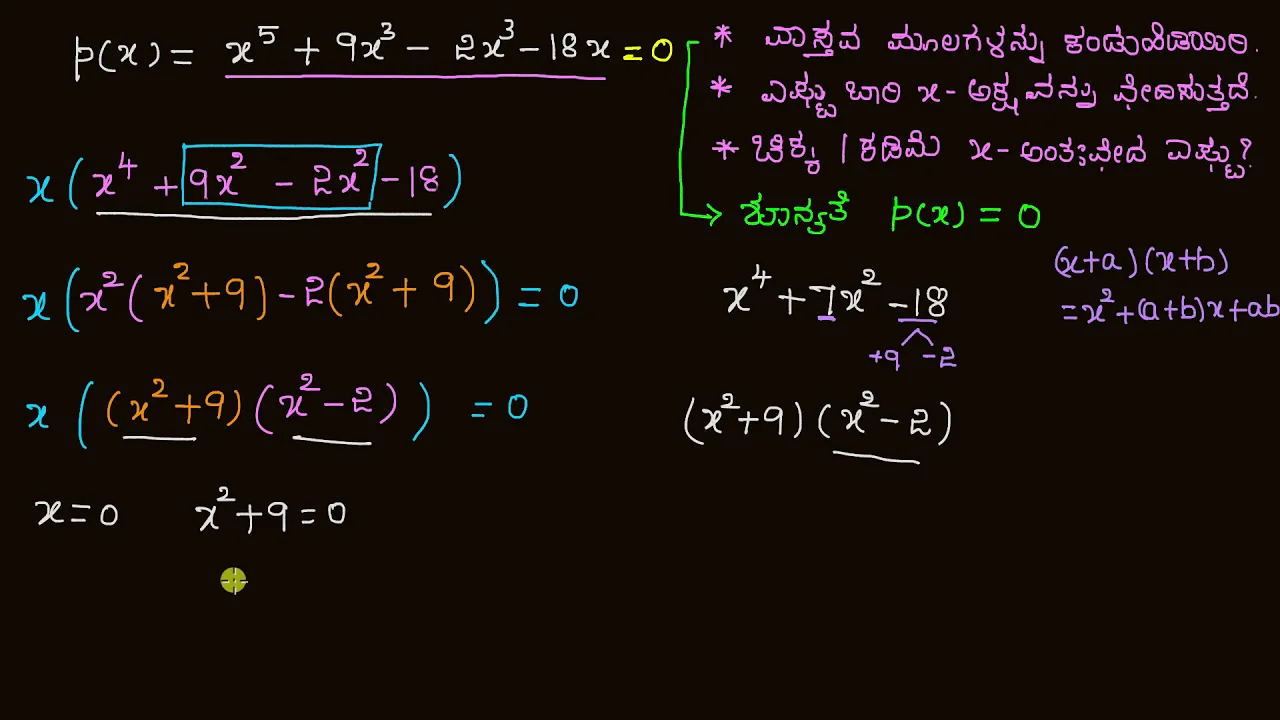 p(x) = x⁵ + 9x³ - 2x³ - 18x = 0
* ವಾಸ್ತವ ಮೂಲಗಳನ್ನು ಕಂಡುಹಿಡಿಯಿರಿ.
* ಎಷ್ಟು ಬಾರಿ x- ಅಕ್ಷವನ್ನು ಛೇದಿಸುತ್ತದೆ.
* ಚಿಕ್ಕ / ಕಡಿಮೆ x-ಅಂತಃಛೇದ ಎಷ್ಟು?
→ ಶೂನ್ಯತೆ p(x) = 0
x(x⁴ + 9x² - 2x² - 18)
x(x²(x² + 9) - 2(x² + 9)) = 0
x((x² + 9)(x² - 2)) = 0
x = 0 x² + 9 = 0
x⁴ + 7x² - 18
+9 -2
(x² + 9)(x² - 2)
(x+a)(x+b)
= x² + (a+b)x + ab